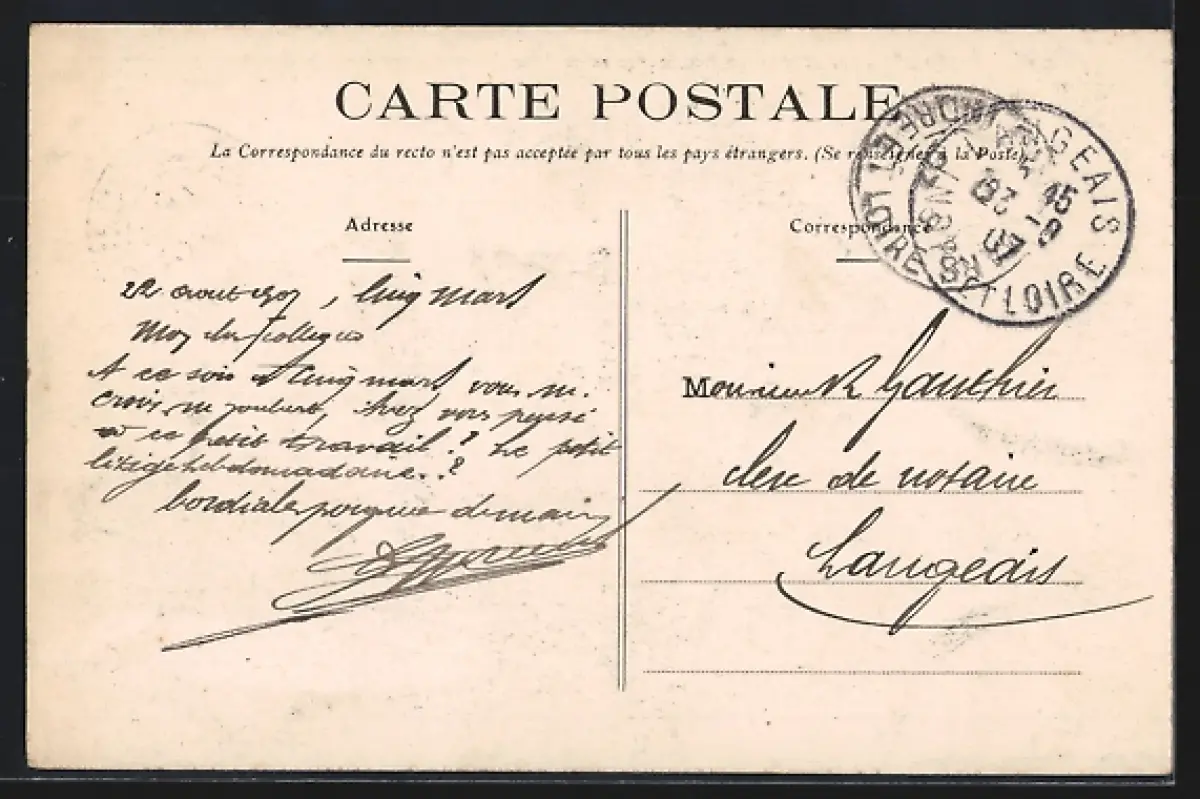 CARTE POSTALE
La Correspondance du recto n'est pas acceptée par tous les pays étrangers. (Se renseigner à la Poste)
Adresse
22 aout 1907, Cinq Mars
Mon cher collegue
A ce soir a Cinq mars, vous me
crois, ne, Avez vous pensé
a ce petit travail? Le petit
hebdomadaire.?
Cordiale poignée de main
Correspondance
Monsieur R Gauthier
clerc de notaire
Langeais
LANGEAIS
15
23 - 8
07
INDRE ET LOIRE